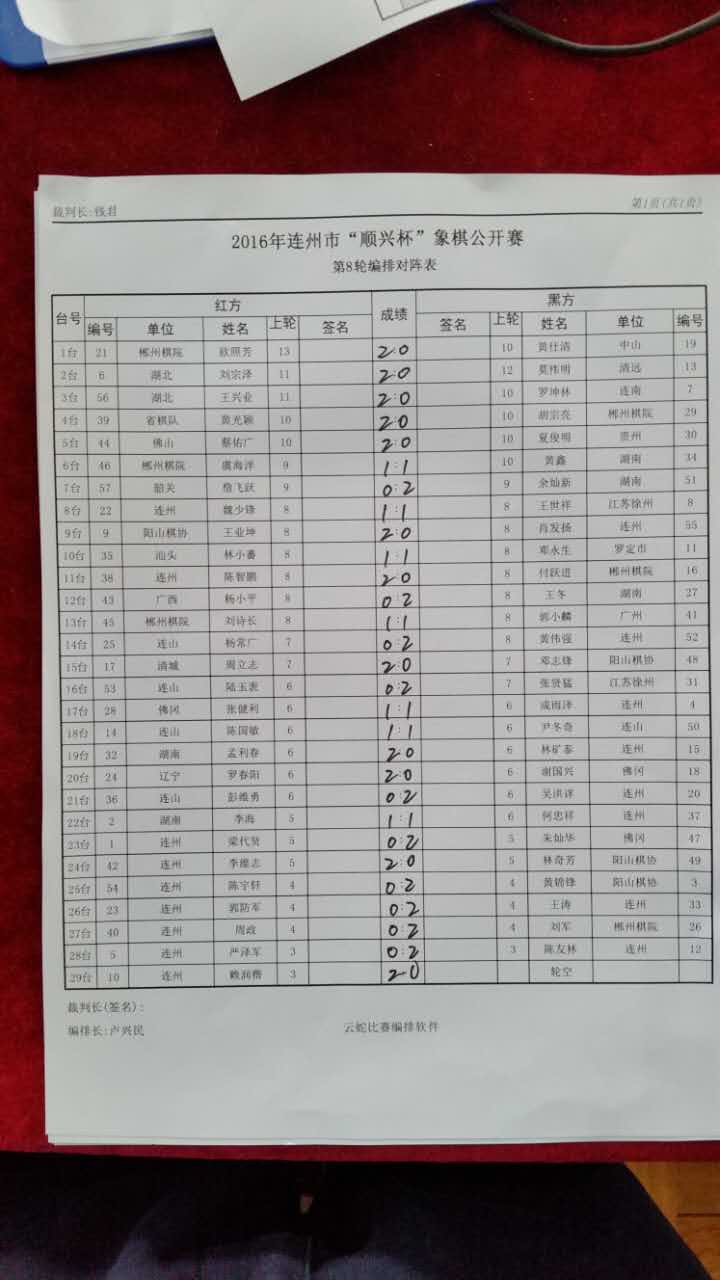 裁判长:钱君
第1页(共1页)
2016年连州市“顺兴杯”象棋公开赛
第8轮编排对阵表
台号 红方 成绩 黑方
编号 单位 姓名 上轮 签名 签名 上轮 姓名 单位 编号
1台 21 郴州棋院 欧照芳 13 2:0 10 黄仕清 中山 19
2台 6 湖北 刘宗泽 11 2:0 12 莫伟明 清远 13
3台 56 湖北 王兴业 11 2:0 10 罗坤林 连南 7
4台 39 省棋队 黄光颖 10 2:0 10 胡宗亮 郴州棋院 29
5台 44 佛山 蔡佑广 10 2:0 10 夏俊明 贵州 30
6台 46 郴州棋院 虞海洋 9 1:1 10 黄鑫 湖南 34
7台 57 韶关 詹飞跃 9 0:2 9 余灿新 湖南 51
8台 22 连州 魏少锋 8 1:1 8 王世祥 江苏徐州 8
9台 9 阳山棋协 王业坤 8 2:0 8 肖发扬 连州 55
10台 35 汕头 林小蕃 8 1:1 8 邓永生 罗定市 11
11台 38 连州 陈智鹏 8 2:0 8 付跃进 郴州棋院 16
12台 43 广西 杨小平 8 0:2 8 王冬 湖南 27
13台 45 郴州棋院 刘诗长 8 1:1 8 郭小麟 广州 41
14台 25 连山 杨常广 7 0:2 8 黄伟强 连州 52
15台 17 清城 周立志 7 2:0 7 邓志锋 阳山棋协 48
16台 53 连山 陆玉表 6 0:2 7 张贤猛 江苏徐州 31
17台 28 佛冈 张健利 6 1:1 6 成雨泽 连州 4
18台 14 连山 陈国敏 6 1:1 6 尹冬奇 连山 50
19台 32 湖南 孟利春 6 2:0 6 林矿泰 连州 15
20台 24 辽宁 罗春阳 6 2:0 6 谢国兴 佛冈 18
21台 36 连山 彭维勇 6 0:2 6 吴洪详 连州 20
22台 2 湖南 李海 5 1:1 6 何忠祥 连州 37
23台 1 连州 荣代贤 5 0:2 5 朱灿华 佛冈 47
24台 42 连州 李维志 5 2:0 5 林奇芳 阳山棋协 49
25台 54 连州 陈宇轩 4 0:2 4 黄锦锋 阳山棋协 3
26台 23 连州 郭防军 4 0:2 4 王涛 连州 33
27台 40 连州 周政 4 0:2 4 刘军 郴州棋院 26
28台 5 连州 严泽军 3 0:2 3 陈友林 连州 12
29台 10 连州 赖润楷 3 2:0 轮空
裁判长(签名):
编排长:卢兴民 云蛇比赛编排软件